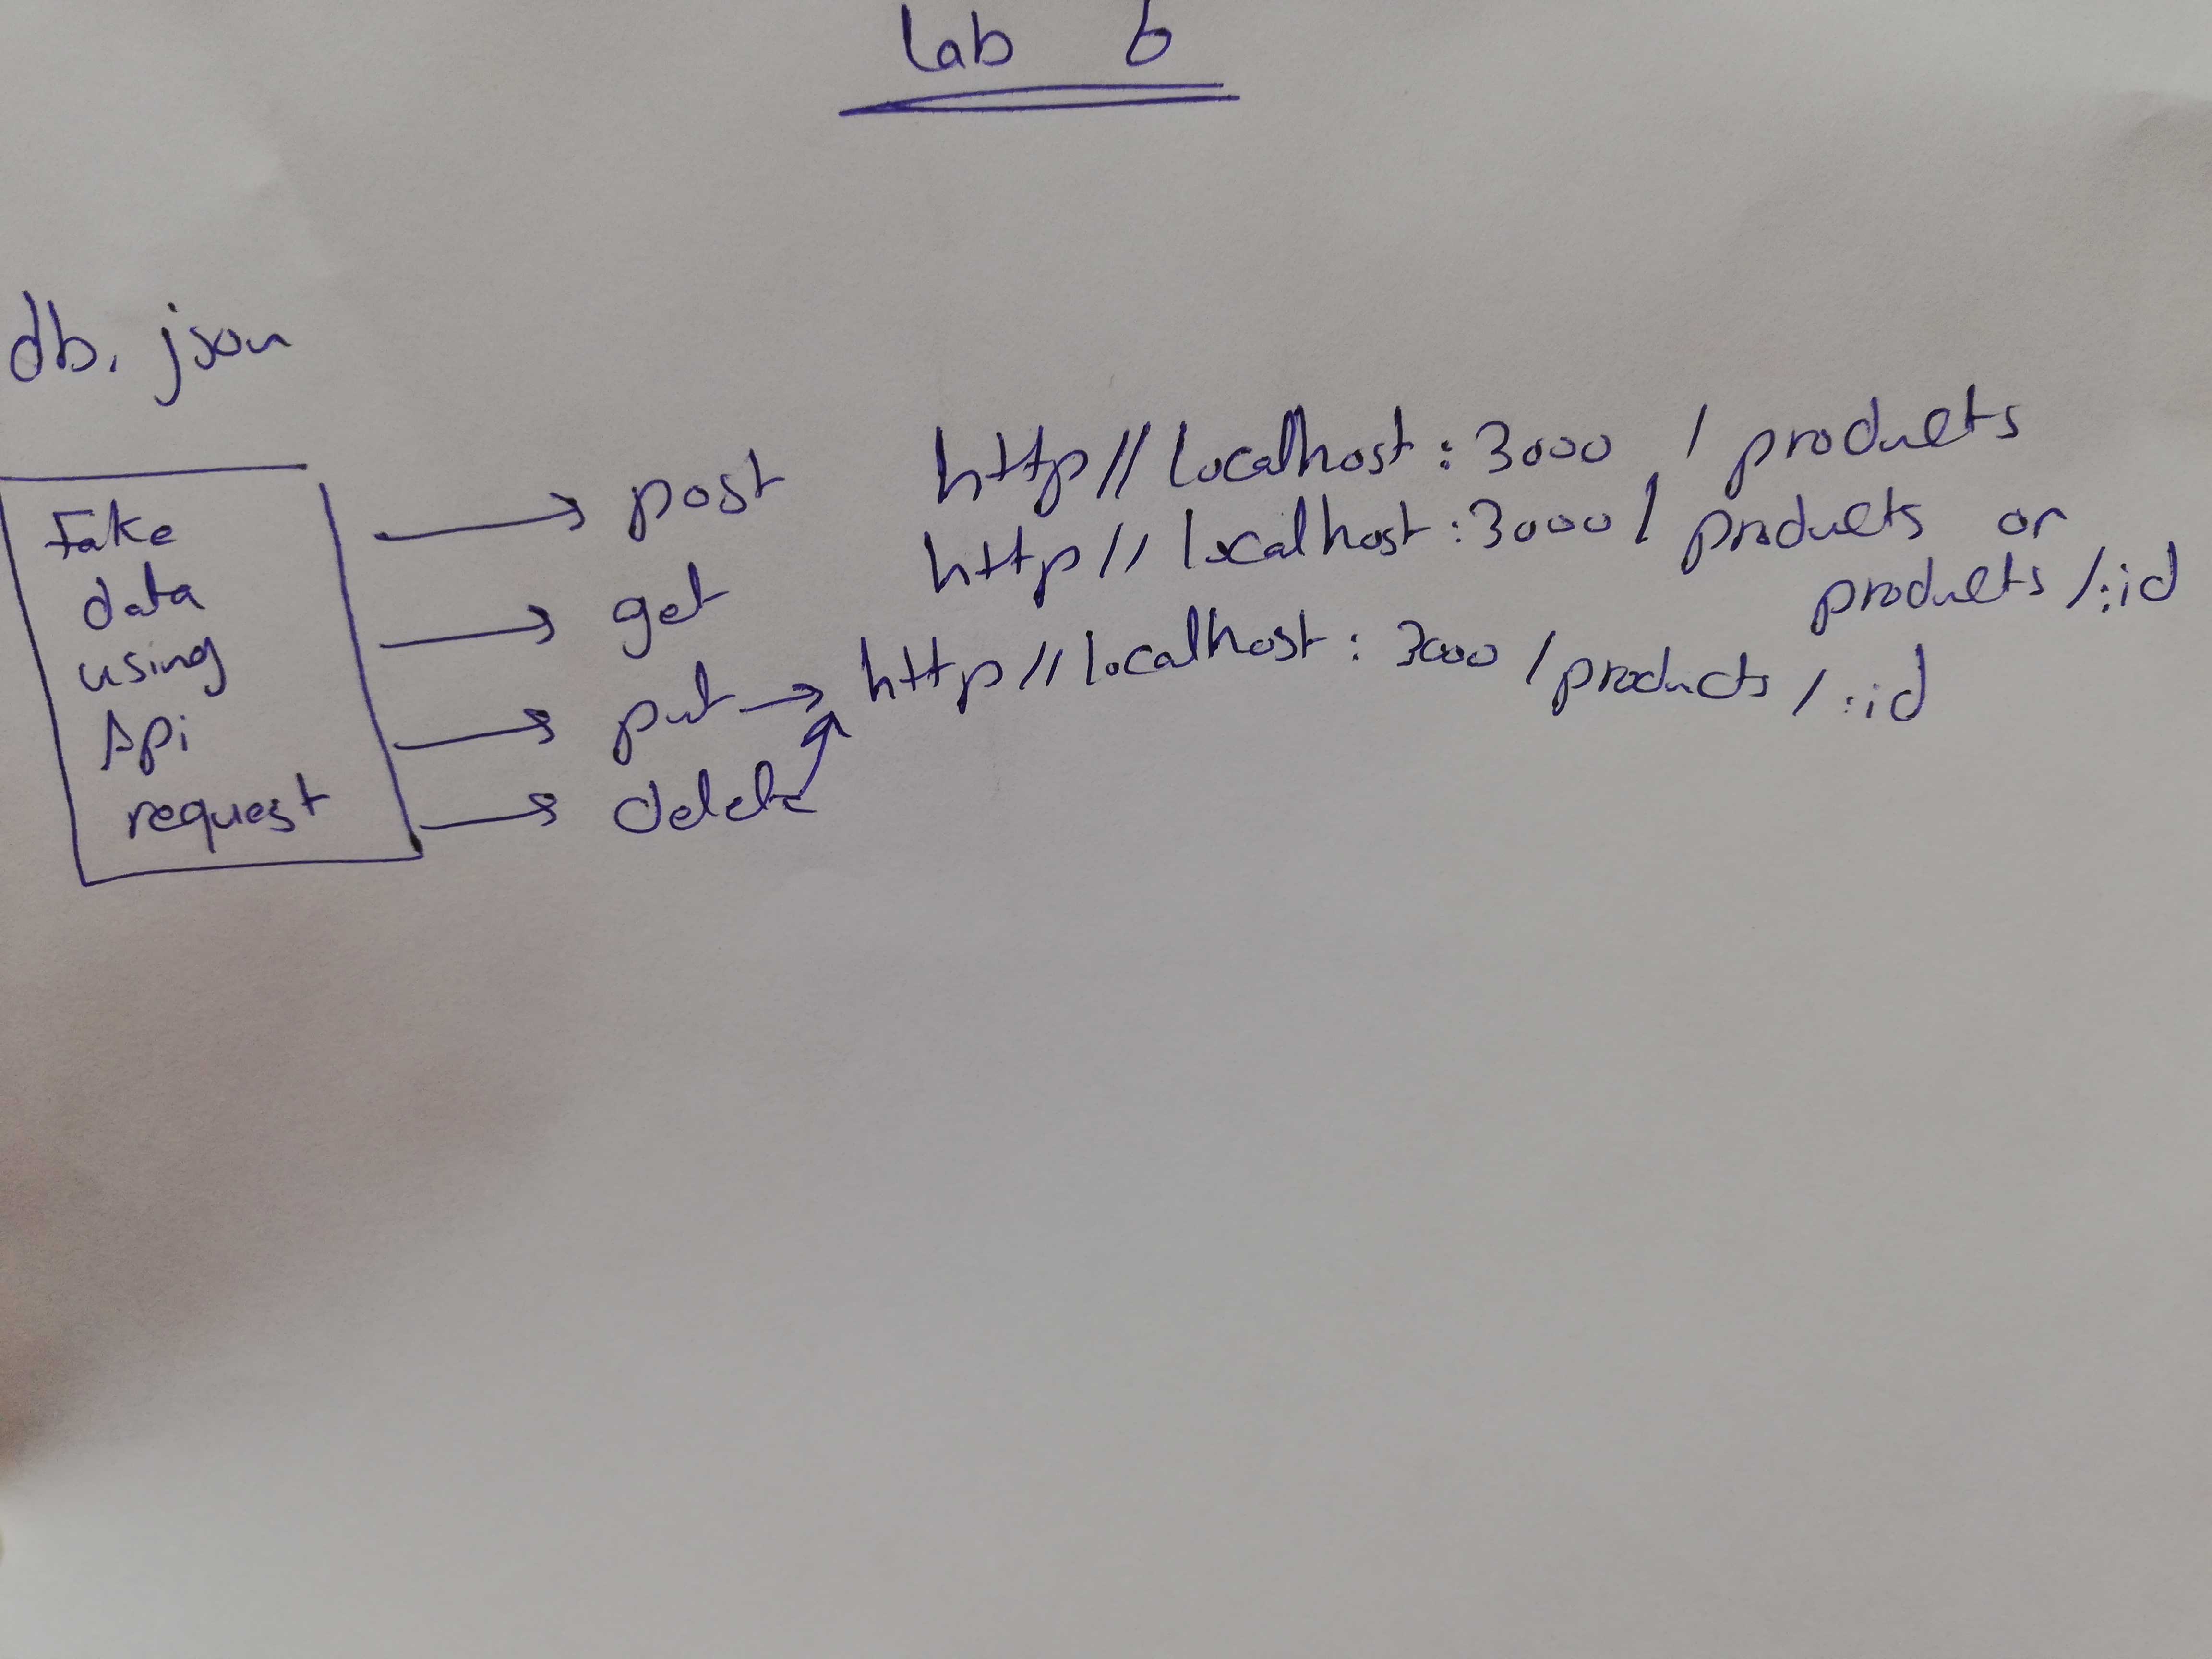 lab 6
db.json
Fake
data
using
Api
request
post http//localhost:3000/products
get http//localhost:3000/products or
products/:id
put http//localhost:3000/products/:id
delete